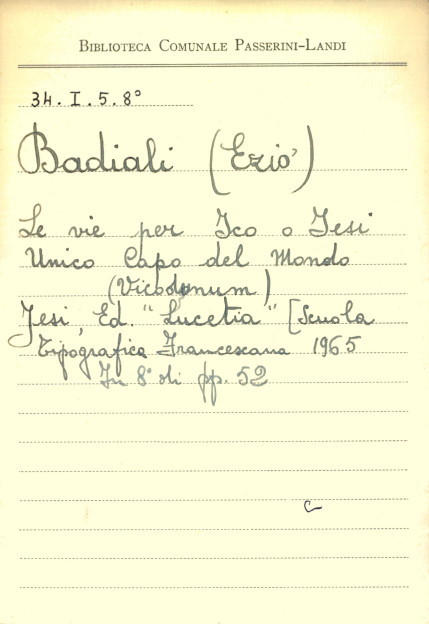 BIBLIOTECA COMUNALE PASSERINI-LANDI
34. I. 5. 8°
Badiali (Ezio)
Le vie per Ico o Jesi
Unico Capo del Mondo
(Vicodonum)
Jesi, Ed. "Lucetia" [Scuola
Tipografica Francescana 1965
In 8° di pp. 52
C